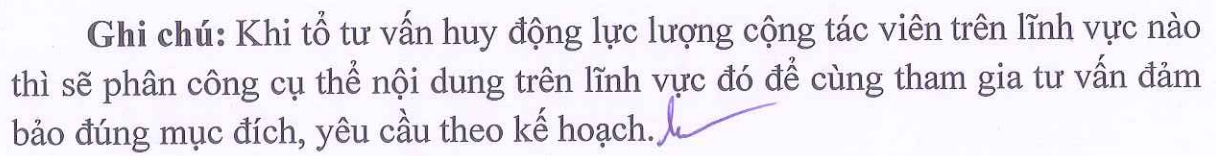 Ghi chú: Khi tổ tư vấn huy động lực lượng cộng tác viên trên lĩnh vực nào
thì sẽ phân công cụ thể nội dung trên lĩnh vực đó để cùng tham gia tư vấn đảm
bảo đúng mục đích, yêu cầu theo kế hoạch.